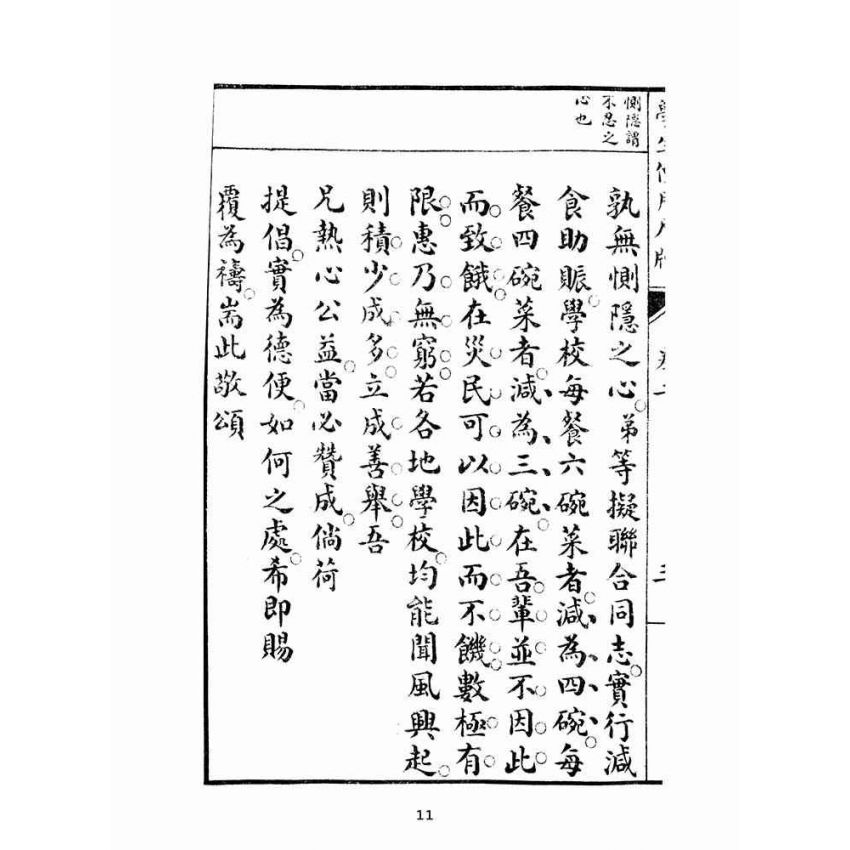 學生使用尺牘 卷一 三
惻隱謂
不忍之
心也
孰無惻隱之心。弟等擬聯合同志。實行減
食助賑。學校每餐六碗菜者。減為四碗。每
餐四碗菜者。減為三碗。在吾輩並不因此
而致餓。在災民可以因此而不饑。數極有
限。惠乃無窮。若各地學校。均能聞風興起。
則積少成多。立成善舉。吾
兄熱心公益。當必贊成。倘荷
提倡。實為德便。如何之處。希即賜
覆為禱。耑此敬頌
11